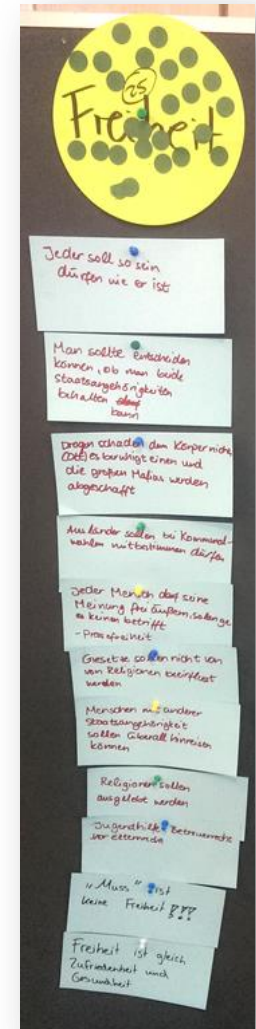 25
Freiheit
Jeder soll so sein
dürfen wie er ist
Man sollte entscheiden
können, ob man beide
Staatsangehörigkeiten
behalten
kann
Drogen schaden dem Körper nicht
es beruhigt einen und
die großen Mafias werden
abgeschafft
Ausländer sollen bei Kommunal-
wahlen mitbestimmen dürfen
Jeder Mensch darf seine
Meinung frei äußern, solange
es keinen betrifft
- Pressefreiheit
Gesetze sollen nicht von
von Religionen beeinflusst
werden
Menschen mit anderer
Staatsangehörigkeit
sollen überall hinreisen
können
Religionen sollen
ausgelebt werden
Jugendhilfe
vor
"Muss" ist
keine Freiheit !!!
Freiheit ist gleich
Zufriedenheit und
Gesundheit